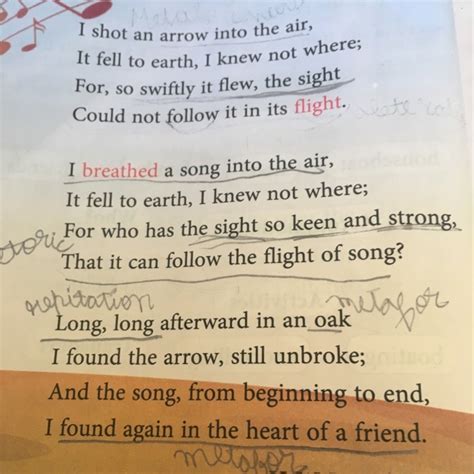 I shot an arrow into the air,
It fell to earth, I knew not where;
For, so swiftly it flew, the sight
Could not follow it in its flight.
I breathed a song into the air,
It fell to earth, I knew not where;
For who has the sight so keen and strong,
toric
That it can follow the flight of song?
repitation
metafor
Long, long afterward in an oak
I found the arrow, still unbroke;
And the song, from beginning to end,
I found again in the heart of a friend.
metafor